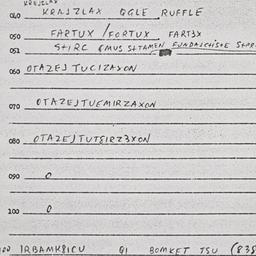 KRAJZLAX
040 KRAJZLAX GGLE RUFFLE
050 FARTUX / FORTUX FART3X
051 STIRC GMUS STTAMEN
060 OTAZEJTUCIZAXON
070 OTAZEJTUEMIRZAXON
080 OTAZEJTUTSIRZ3XON
090 0
100 0
IRBAMK8ICU QI BOMKET TSU (838